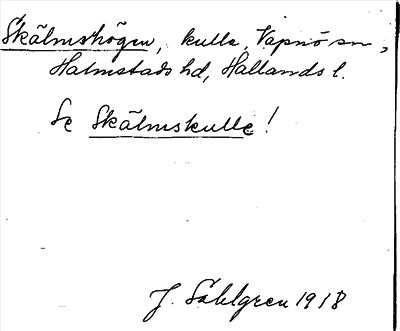 Skälmshögen, kulle, Vapnö sn,
Halmstads hd, Hallands l.
Se Skälmskulle!
J. Sahlgren 1918